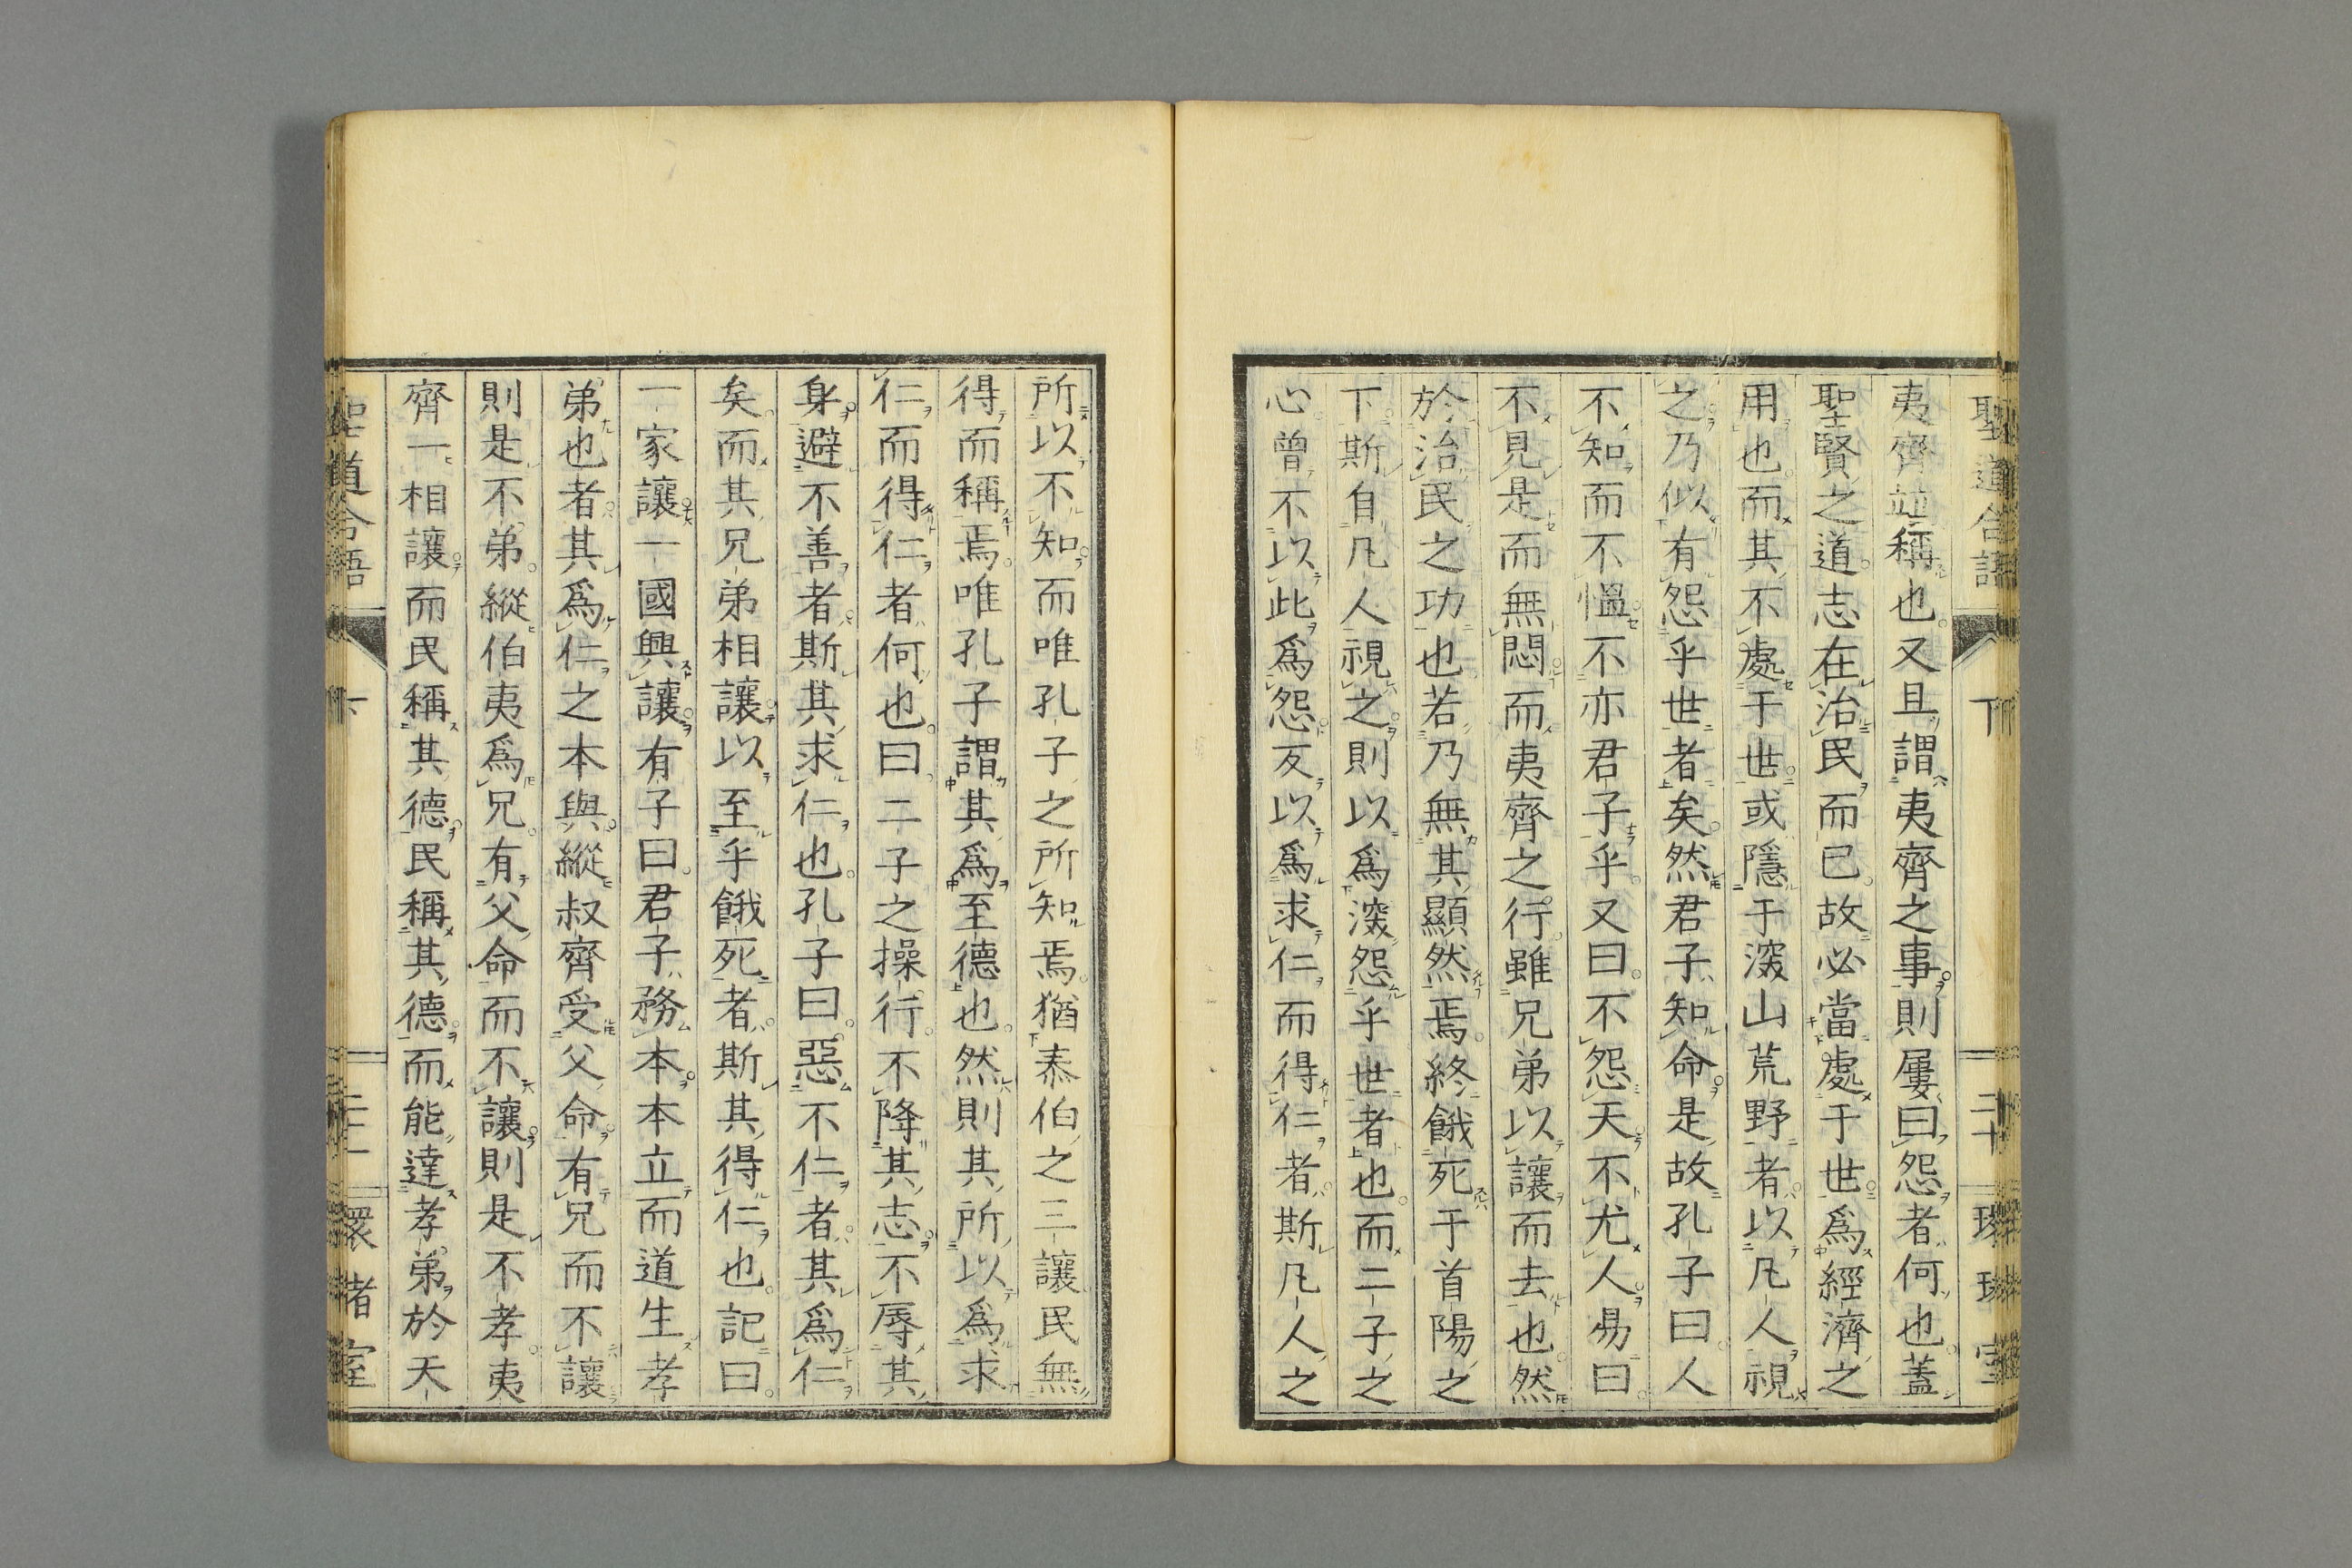 聖道合語 下 二十
夷齊竝稱也又且謂夷齊之事則屢曰怨者何也蓋
聖賢之道志在治民而已故必當處于世爲經濟之
用也而其不處于世或隱于深山荒野者以凡人視
之乃似有怨乎世者矣然君子知命是故孔子曰人
不知而不慍不亦君子乎又曰不怨天不尤人易曰
不見是而無悶而夷齊之行雖兄弟以讓而去也然
於治民之功也若乃無其顯然焉終餓死于首陽之
下斯自凡人視之則以爲深怨乎世者也而二子之
心曾不以此爲怨反以爲求仁而得仁者斯凡人之
所以不知而唯孔子之所知焉猶泰伯之三讓民無
得而稱焉唯孔子謂其爲至德也然則其所以爲求
仁而得仁者何也曰二子之操行不降其志不辱其
身避不善者斯其求仁也孔子曰惡不仁者其爲仁
矣而其兄弟相讓以至乎餓死者斯其得仁也記曰
一家讓一國興讓有子曰君子務本本立而道生孝
弟也者其爲仁之本與縱叔齊受父命有兄而不讓
則是不弟縱伯夷爲兄有父命而不讓則是不孝夷
齊一相讓而民稱其德民稱其德而能達孝弟於天
聖道合語 下